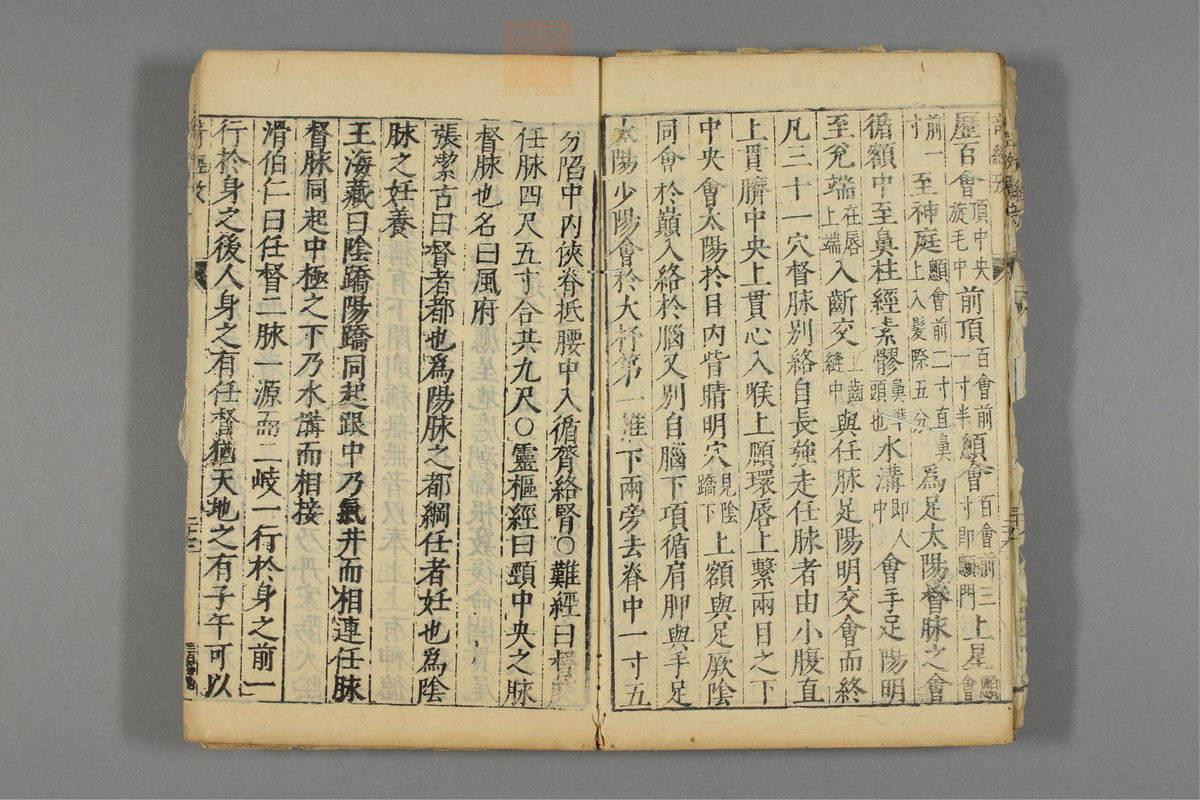 歷百會頂中央旋毛中前頂百會前一寸半顖會百會前三寸即顖門上星顖會
前一寸至神庭顖會前二寸直鼻上入髮際五分為足太陽督脉之會
循額中至鼻柱經素髎鼻準頭也水溝即人中會手足陽明
至兌端在唇上端入齗交上齒縫中與任脉足陽明交會而終
凡三十一穴督脉別絡自長強走任脉者由小腹直
上貫臍中央上貫心入喉上頤環唇上繫兩目之下
中央會太陽於目內眥睛明穴見陰蹻下上額與足厥陰
同會於巔入絡於腦又別自腦下項循肩胛與手足
太陽少陽會於大杼第一椎下兩旁去脊中一寸五
分陷中內俠脊抵腰中入循膂絡腎○難經曰督
任脉四尺五寸合共九尺○靈樞經曰頸中央之脉
督脉也名曰風府
張潔古曰督者都也為陽脉之都綱任者妊也為陰
脉之妊養
王海藏曰陰蹻陽蹻同起跟中乃氣井而相連任脉
督脉同起中極之下乃水溝而相接
滑伯仁曰任督二脉一源而二岐一行於身之前一
行於身之後人身之有任督猶天地之有子午可以